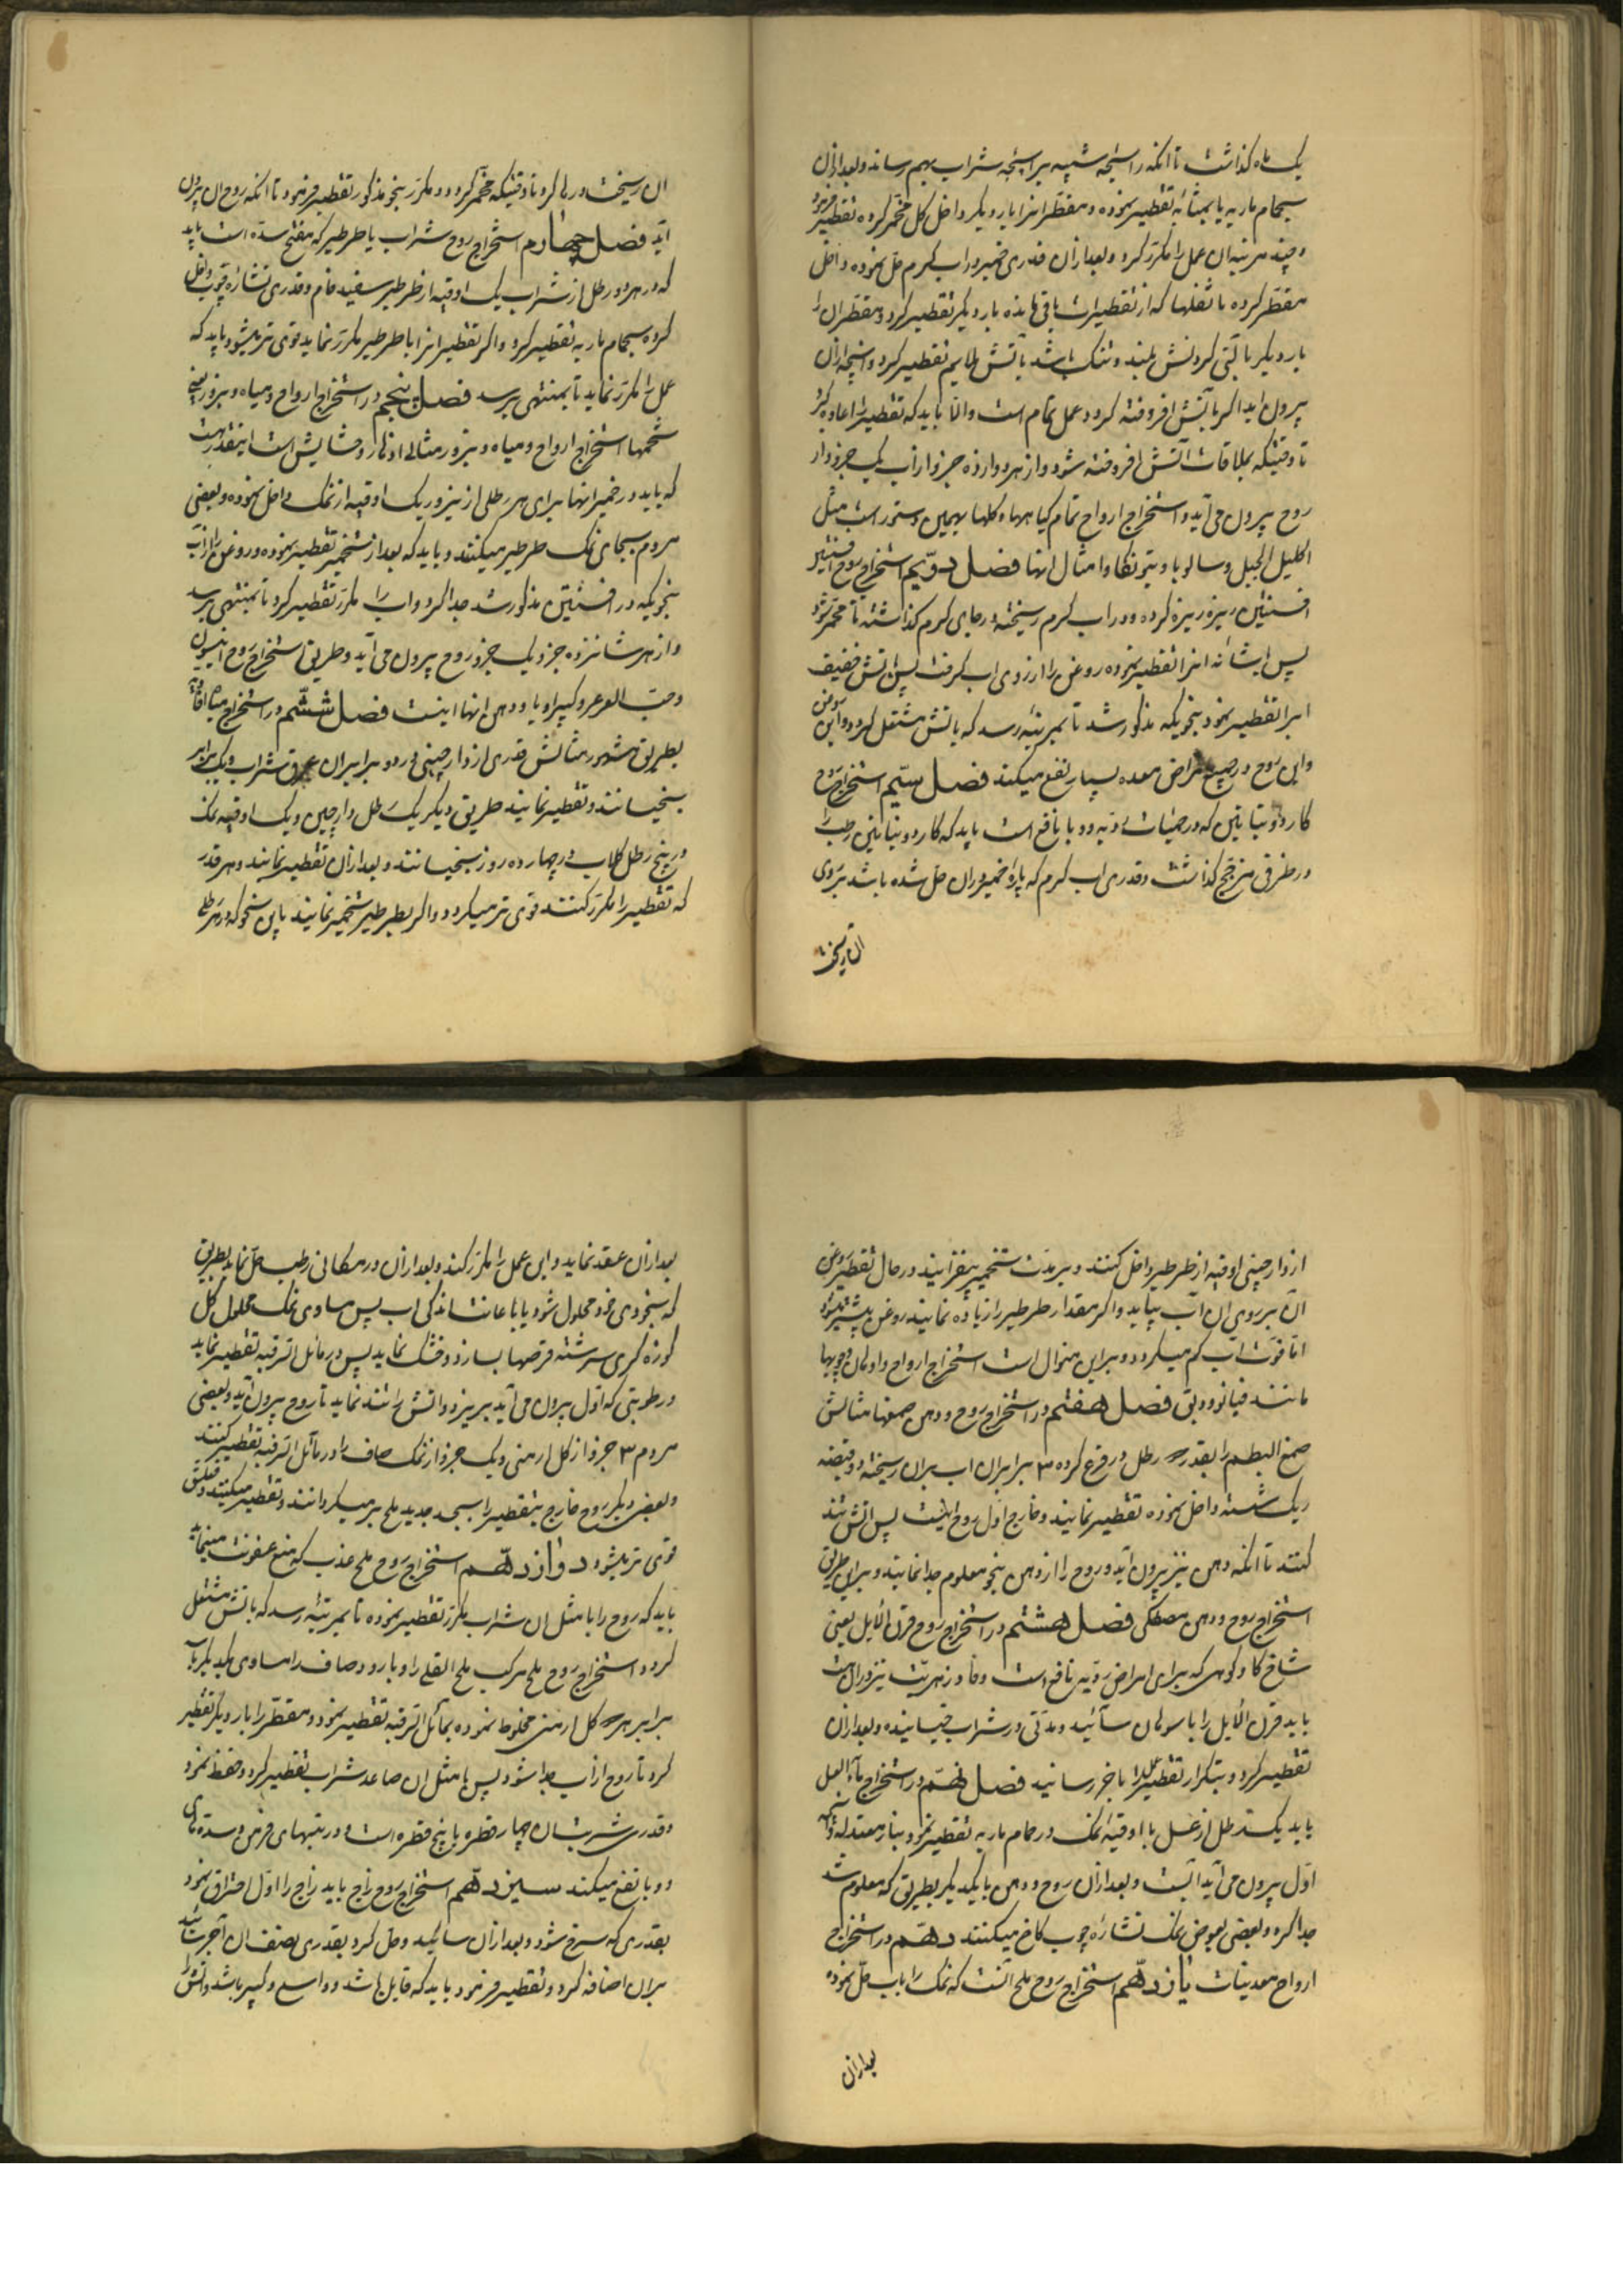 یک ماه گذاشت تا آنکه رایحه شبیه برایحه شراب بهم رساند و بعد ازان
بحمام ماریه یا بمثانه تقطیر نموده و مقطر انرا بار دیگر داخل کل مخمر کرده تقطیر فرمود
و چند مرتبه ان عمل را مکرر کرد و بعد ازان قدری خمیر در اب گرم حل نموده داخل
مقطر کرده با ثفلها که از تقطیرات باقی مانده بار دیگر تقطیر کرد و مقطر ان را
بار دیگر با لتی که گردنش بلند و تنگ باشد باتش ملایم تقطیر کرد و انچه ازان
بیرون اید اگر باتش افروخته گردد عمل تمام است والا باید که تقطیر را اعاده کرد
تا وقتیکه بملاقات آتش افروخته شود و از هر دوازده جزو ازاب یک جزو وار
روح بیرون می آید و استخراج ارواح تمام گیاهها و گلها بهمین دستور است مثل
اکلیل الجبل و سالویا و بتونکا و امثال انها فصل دویم استخراج روح افسنتین
افسنتین ریزه ریزه کرده و در اب گرم ریخته در جای گرم گذاشته تا مخمر شود
پس ایشانه انرا تقطیر نموده روغن را از روی اب گرفت پس باتش خفیف
انرا تقطیر نمود بنحویکه مذکور شد تا بمرتبه رسد که باتش مشتعل گردد و این روغن
و این روح در جمیع امراض معده بسیار نفع میکند فصل سیم استخراج روح
کاردو بنیاتین که در حمیات ردیه و وبا نافع است باید که کاردو بنیاتین رطب را
در ظرفی مزجج گذاشت و قدری اب گرم که پاره خمیر دران حل شده باشد بر روی
ان ریخت
ان ریخت و رها کرد تا وقتیکه مخمر گردد و مکرر بنحو مذکور تقطیر فرمود تا انکه روح ان بیرون
آید فصل چهارم استخراج روح شراب با طرطیر که مفتح سده است باید
که در هر دو رطل از شراب یک اوقیه از طرطیر سفید خام و قدری نشاره چوب داخل
کرده بحمام ماریه تقطیر کرد و اگر تقطیر انرا با طرطیر مکرر نماید قوی تر میشود باید که
عمل را مکرر نماید تا بمنتهی برسد فصل پنجم در استخراج ارواح و میاه و بزور یعنی
تخمها استخراج ارواح و میاه و بزور مثال اذخار و خشایش است اینقدر هست
که باید در خمیر انها برای هر رطلی از بزور یک اوقیه از نمک داخل نموده و بعضی
مردم بجای نمک طرطیر میکنند و باید که بعد از تخمیر تقطیر نموده و روغن را از آب
بنحویکه در افسنتین مذکور شد جدا کرد و اب را مکرر تقطیر کرد تا بمنتهی برسد
و از هر شانزده جزو یک جزو روح بیرون می آید و طریق استخراج روح انیسون
و حب العرعر و کپراویا و دهن انها اینست فصل ششم در استخراج میاه افاویه
بطریق مشهور مثالش قدری از دارچینی در دو برابر ان عرق شراب و یک برابر
بخیسانند و تقطیر نمایند طریق دیگر یک رطل دارچین و یک اوقیه نمک
در پنج رطل گلاب در چهارده روز بخیسانند و بعد ازان تقطیر نمایند و هر قدر
که تقطیر را مکرر کنند قوی تر میگردد و اگر بطرطیر تخمیر نمایند باین نحو که در هر رطلی
از دارچینی اوقیه از طرطیر داخل کنند و بر مدت تخمیر بیفزایند در حال تقطیر روغن
آن بر روی ان آب بیاید و اگر مقدار طرطیر را زیاده نمایند روغن بیشتر میشود
اما قوت آب کم میگردد و براین منوال است استخراج ارواح و اوهان چوبها
مانند فیانوودبتی فصل هفتم در استخراج روح و دهن صمغها مثالش
صمغ البطم را بقدر رطل در قرع کرده ۳ برابر ان اب بران ریخته دو قبضه
ریک شسته داخل نموده تقطیر نمایند و خارج اول روح اینست پس اتش تند
کنند تا آنکه دهن نیز بیرون آید و روح را از دهن بنحو معلوم جدا نمایند و براین طریق
استخراج روح و دهن مصطکی فصل هشتم در استخراج روح قرن الایل یعنی
شاخ گاو کوهی که برای امراض ردیه نافع است و فادزهریت نیز در ان هست
باید قرن الایل را با سوهان سائید و مدتی در شراب خیسانیده و بعد ازان
تقطیر کرد و بتکرار تقطیر عمل را باخر رسانید فصل نهم در استخراج ماء العسل
باید یکرطل از عسل با اوقیه نمک در حمام ماریه تقطیر نمود بنار معتدله و آنچه
اول بیرون می آید آبست و بعد ازان روح و دهن با یکدیگر بطریق که معلوم شد
جدا کرد و بعضی بعوض نمک نشاره چوب کاخ میکنند دهم در استخراج
ارواح معدنیات یازدهم استخراج روح ملح آنست که نمک را باب حل نموده
بعد ازان
بعد ازان عقد نماید و این عمل را مکرر کند و بعد ازان در مکانی رطب حل نماید بطریق
که بخودی خود محلول شود یا باعانت اندکی اب پس مساوی نمک محلول گل
کوزه گری سرشته قرصها بسازد و خشک نماید پس در مائل الرقبه تقطیر نماید
و رطوبتی که اول بیرون می آید بریزد و اتش را تند نماید تا روح بیرون آید و بعضی
مردم ۳ جزو از گل ارمنی و یک جزو از نمک صاف را در مائل الرقبه تقطیر کنند
و بعضی دیگر روح خارج بتقطیر را بجسد جدید ملح بر میگردانند و تقطیر میکنند
قوی تر میشود دوازدهم استخراج روح ملح عذب که منع عفونت مینماید
باید که روح را با مثل ان شراب مکرر تقطیر نموده تا بمرتبه رسد که باتش مشتعل
گردد استخراج روح ملح مرکب ملح القلی را و بارود صاف را مساوی یکدیگر با
برابر هر گل ارمنی مخلوط نموده بمائل الرقبه تقطیر نمود و مقطر را بار دیگر تقطیر
کرد تا روح از آب جدا شود پس با مثل ان صاعد شراب تقطیر کرد و حفظ نمود
و قدر شربت ان چهار قطره یا پنج قطره است و در تبهای مزمن و سده های
و وبا نفع میکند سیزدهم استخراج روح زاج باید زاج را اول احتراق نمود
بقدری که سرخ شود و بعد ازان سائید و حل کرد بقدری نصف ان آجر سائیده
بران اضافه کرد و تقطیر فرمود باید که قابل باشد و واسع و کبیر باشد و آتش را